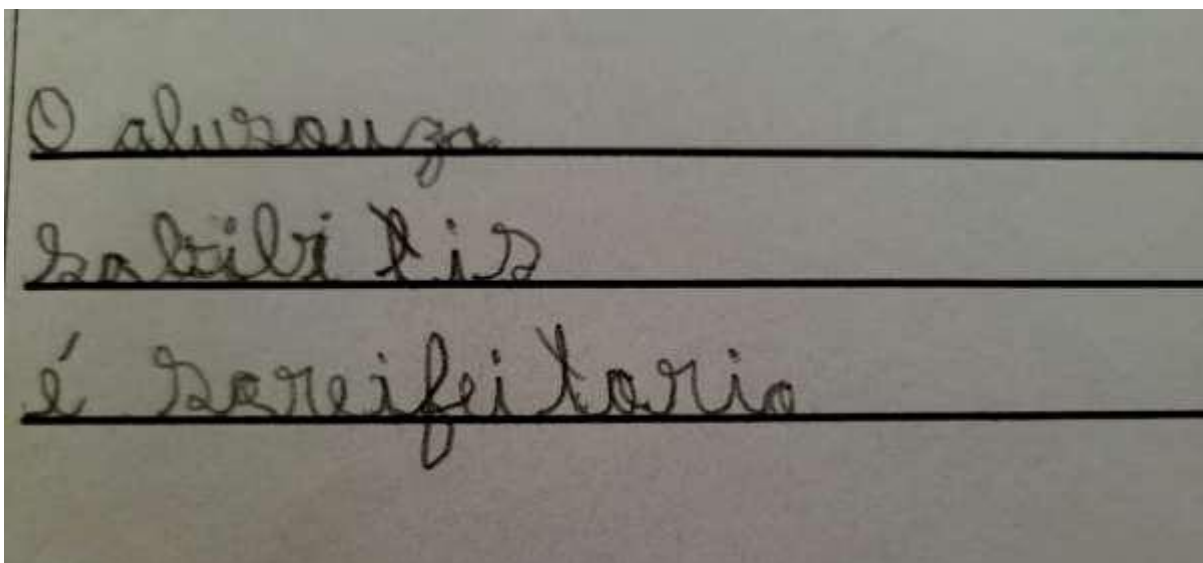 O alusouza
sabilbi tis
é sareifeitorio